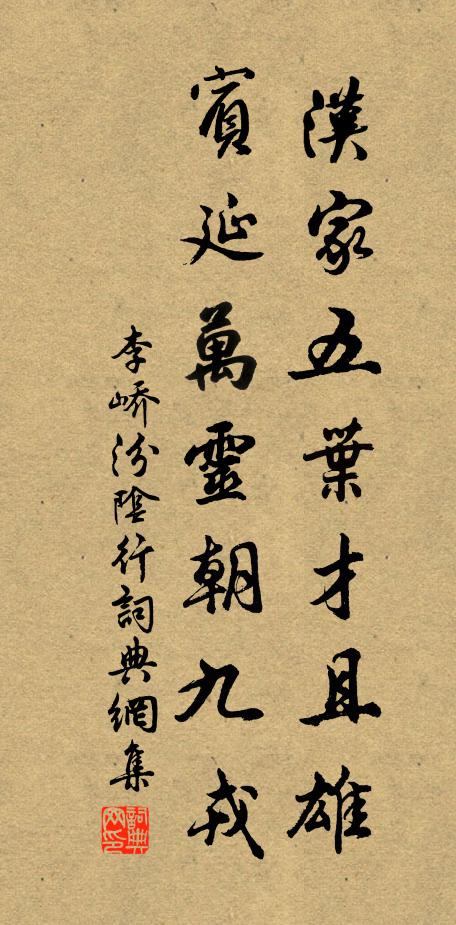 漢家五葉才且雄
賓延萬靈朝九戎
李嶠汾陰行詞典網集
詞典網印